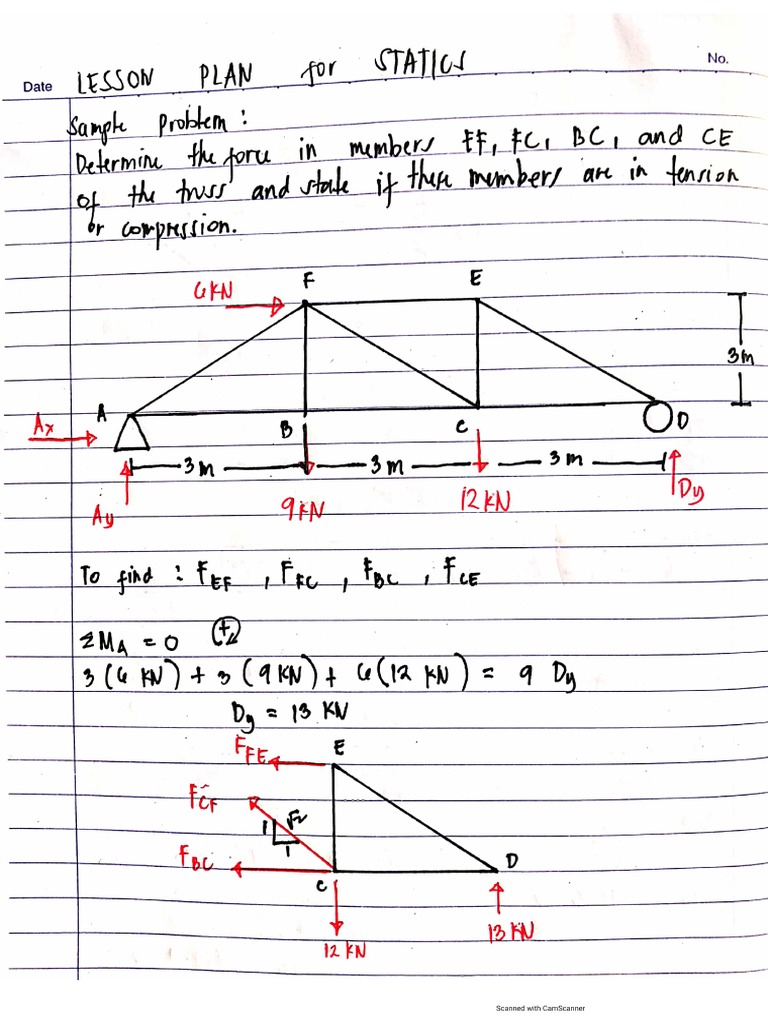 Date
LESSON PLAN for STATICS
No.
Sample Problem:
Determine the force in members EF, FC, BC, and CE
of the truss and state if these members are in tension
or compression.
F
E
6 KN
3m
A
Ax
B
C
D
3m
3m
3m
Ay
9 KN
12 KN
Dy
To find : F_EF , F_FC , F_BC , F_CE
ΣM_A = 0 +
3(6 KN) + 3(9 KN) + 6(12 KN) = 9 Dy
Dy = 13 KN
E
F_FE
F_CF
1
√2
1
F_BC
C
D
12 KN
13 KN
Scanned with CamScanner